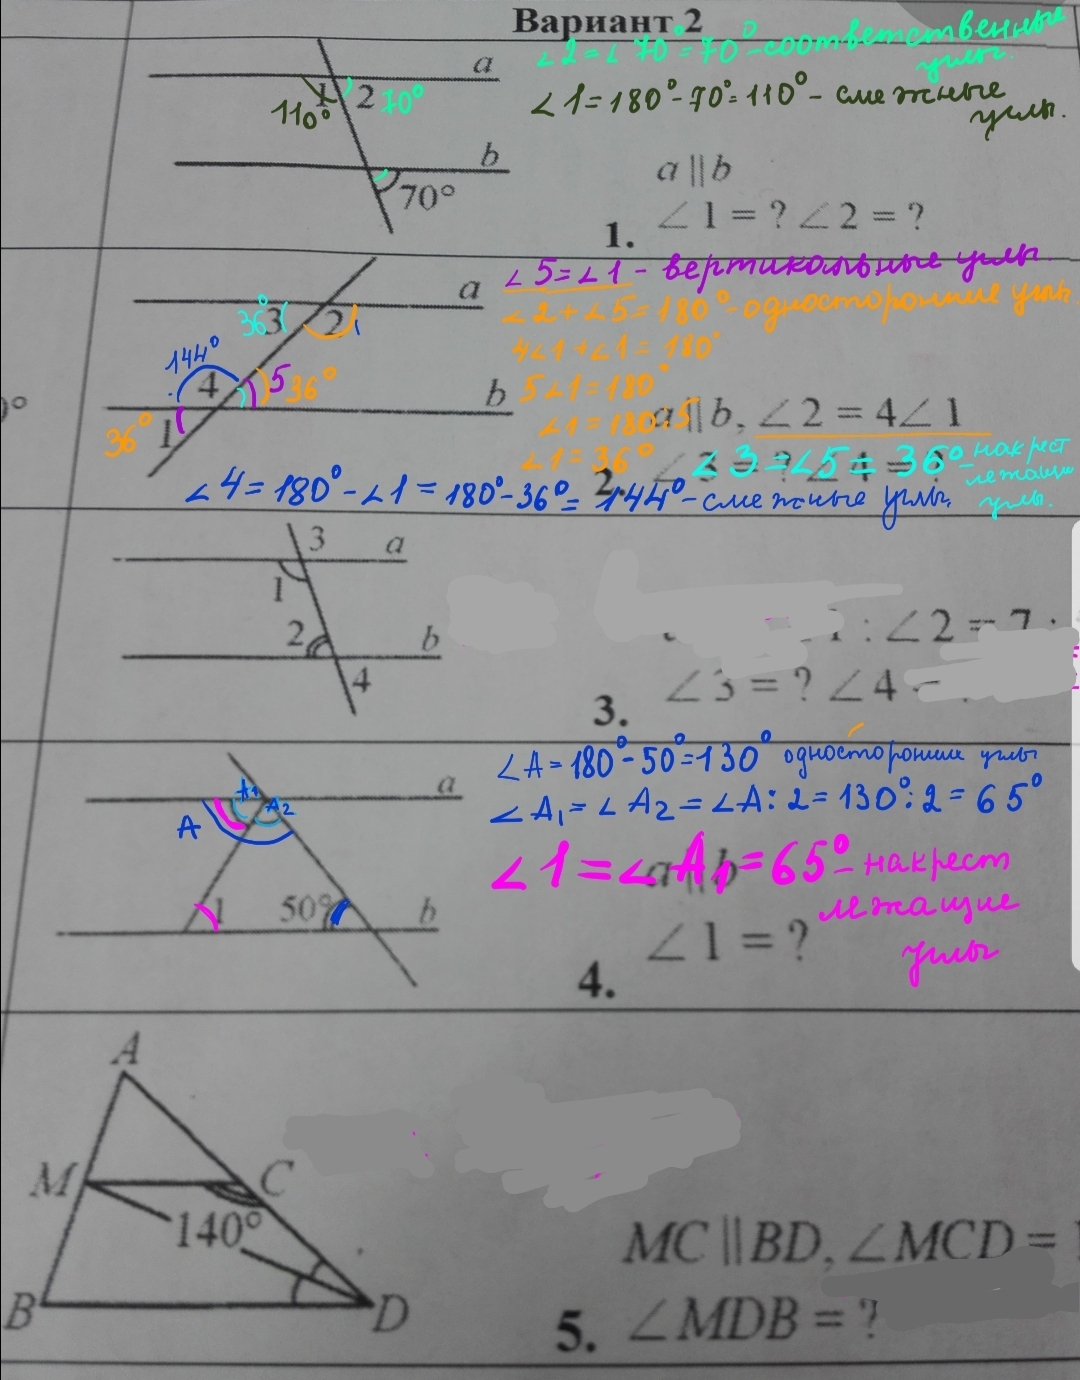 Вариант 2
∠2 = ∠70° = 70° – соответственные
углы.
∠1 = 180° - 70° = 110° – смежные
углы.
a
1 2 70°
110°
b
70°
a || b
1. ∠1 = ? ∠2 = ?
∠5 = ∠1 – вертикальные углы.
∠2 + ∠5 = 180° – односторонние углы
4∠1 + ∠1 = 180°
5∠1 = 180°
∠1 = 180:5
∠1 = 36°
a
36° 3 2
144°
4 5 36°
b
36° 1
a || b, ∠2 = 4∠1
2. ∠3 = ? ∠4 = ?
∠3 = ∠5 = 36° – накрест
лежащие
углы.
∠4 = 180° - ∠1 = 180° - 36° = 144° – смежные углы.
3 a
1
2 b
4
1 : ∠2 = 7 :
3. ∠3 = ? ∠4
∠A = 180° - 50° = 130° односторонние углы
∠A₁ = ∠A₂ = ∠A : 2 = 130° : 2 = 65°
a
A A₁ A₂
∠1 = ∠A₁ = 65° – накрест
лежащие
углы
1 50° b
a || b
4. ∠1 = ?
A
M C
140°
B D
MC || BD, ∠MCD =
5. ∠MDB = ?